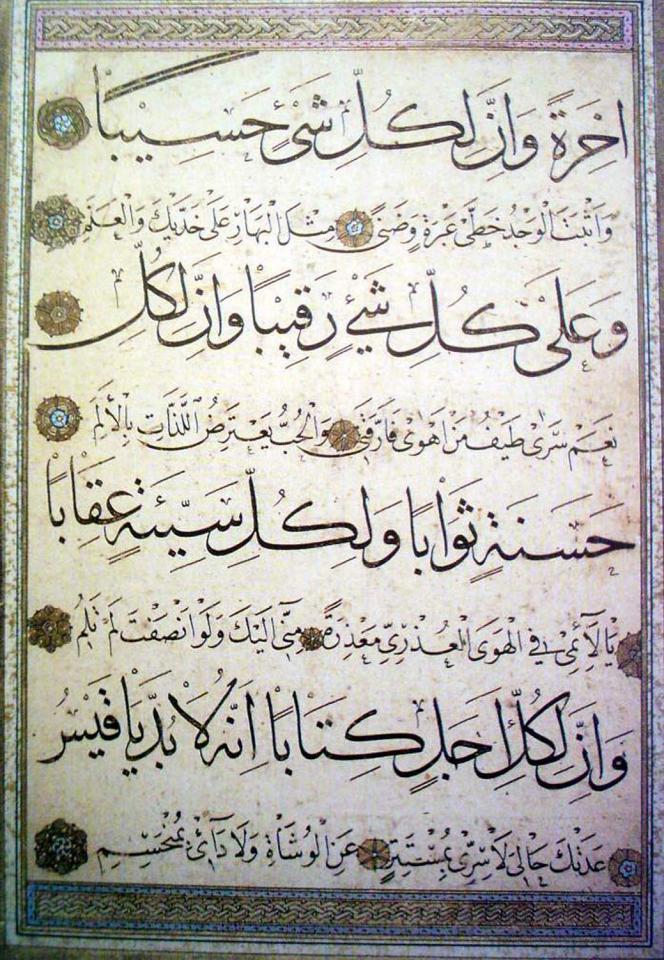 اخِرَةً وَاِنَّ لِكُلِّ شَىْءٍ حَسِيبًا
وَاَثْبَتَ الْوَجْدُ خَطَّىْ عَبْرَةٍ وَضَنًى مِثْلَ الْبَهَارِ عَلَى خَدَّيْكَ وَالْعَنَمِ
وَعَلَى كُلِّ شَيْءٍ رَقِيبًا وَاِنَّ لِكُلِّ
نَعَمْ سَرَى طَيْفُ مَنْ اَهْوَى فَاَرَّقَنِى وَالْحُبُّ يَعْتَرِضُ اللَّذَّاتِ بِالْاَلَمِ
حَسَنَةٍ ثَوَابًا وَلِكُلِّ سَيِّئَةٍ عِقَابًا
يَا لَائِمِى فِى الْهَوَى الْعُذْرِىِّ مَعْذِرَةً مِنِّى اِلَيْكَ وَلَوْ اَنْصَفْتَ لَمْ تَلُمِ
وَاِنَّ لِكُلِّ اَجَلٍ كِتَابًا اِنَّهُ لَا بُدَّ يَا قَيْسُ
عَدَتْكَ حَالِىَ لَا سِرِّى بِمُسْتَتِرٍ عَنِ الْوُشَاةِ وَلَا دَائِى بِمُنْحَسِمِ